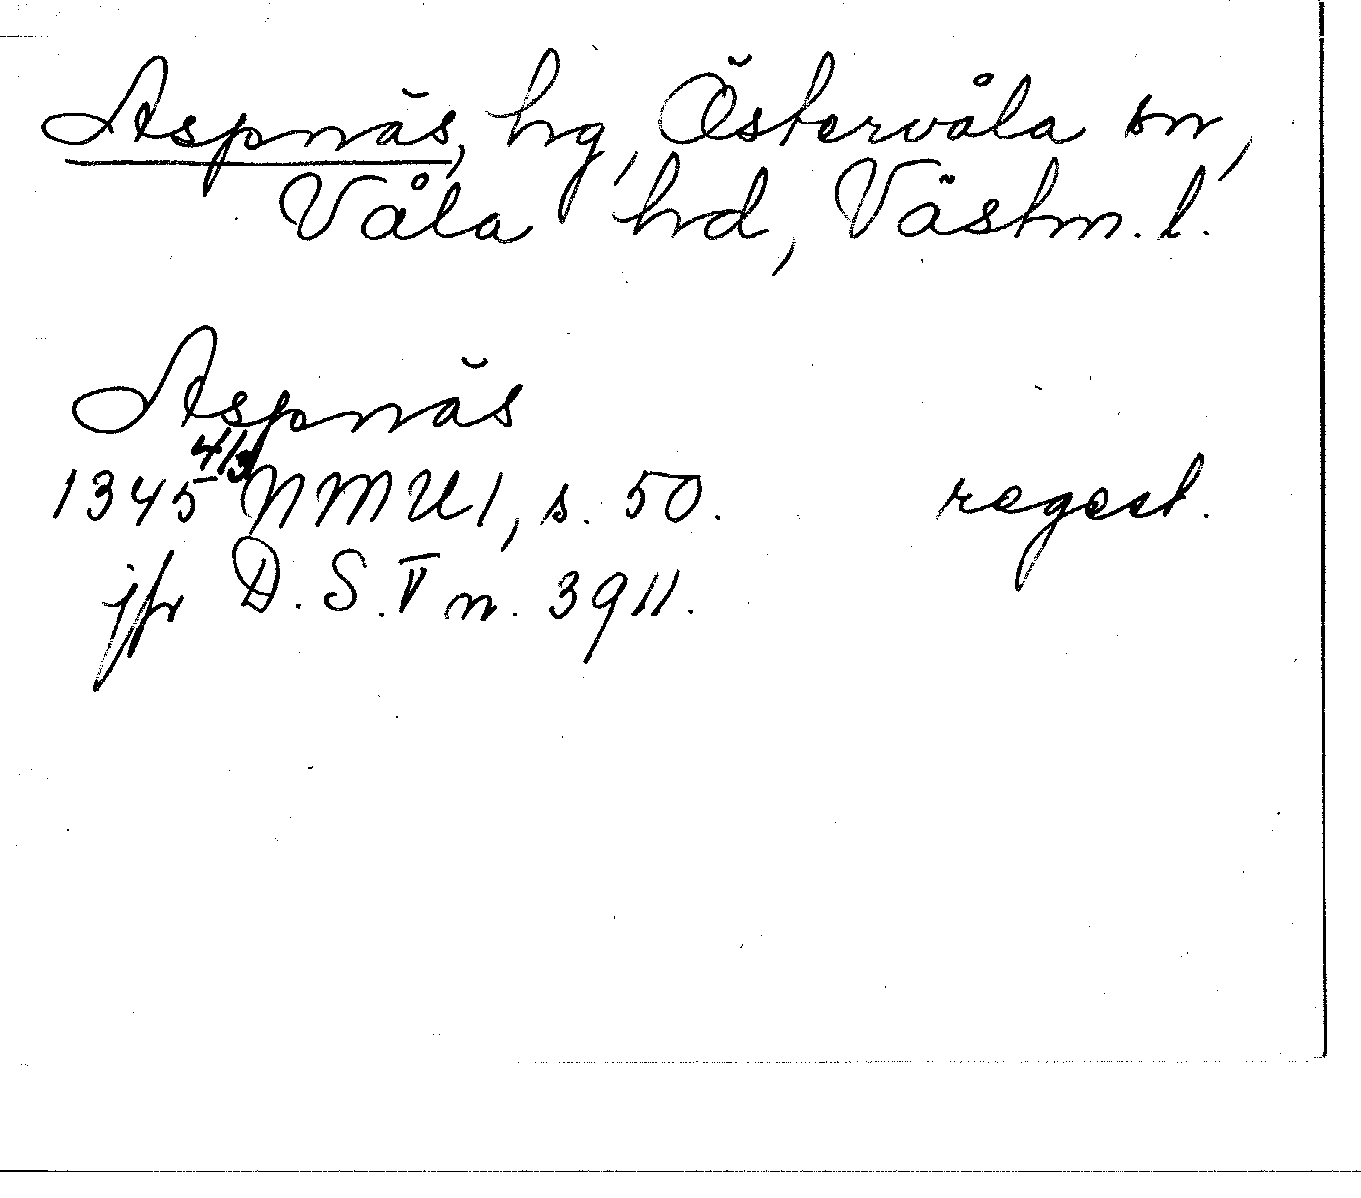 Aspnäs, hg, Östervåla sn,
Våla hd, Västm. l.
Aspnäs
1345 4/3 NMU1, s. 50. regest.
jfr D.S. V n. 3911.